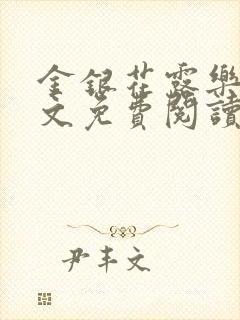 金銀花露樂
文免費閱讀
尹丰文